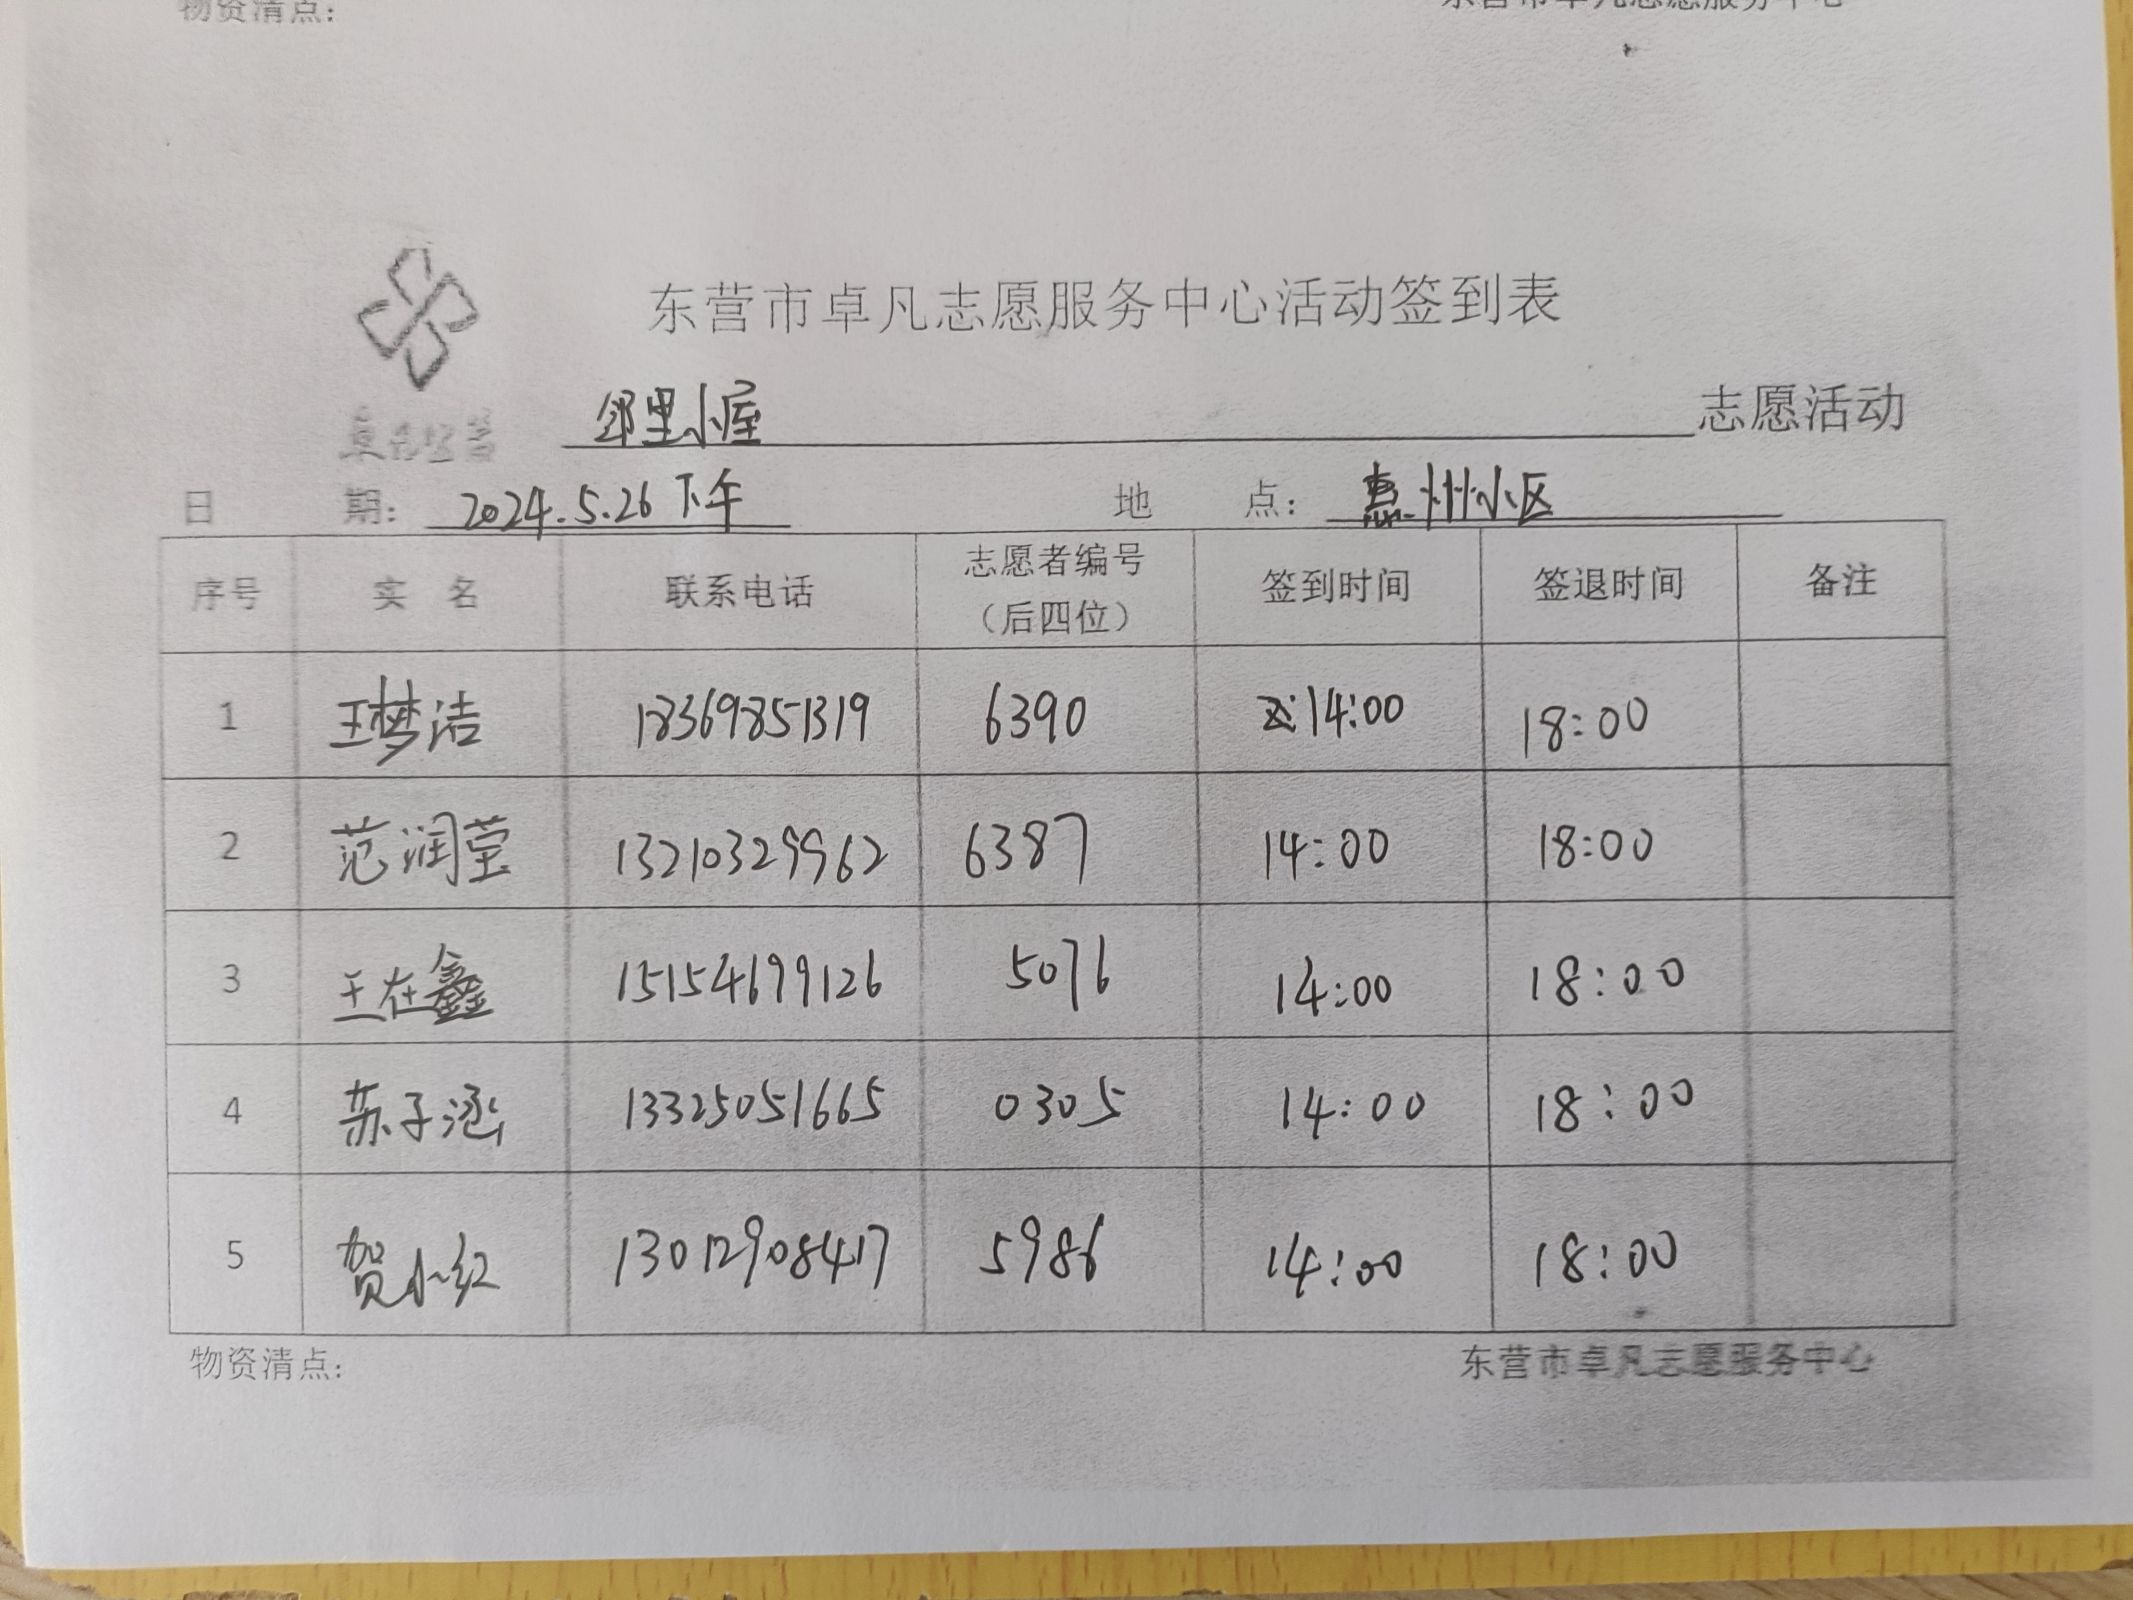 物资清点：
东营市卓凡志愿服务中心
东营市卓凡志愿服务中心活动签到表
邻里小屋 志愿活动
日 期： 2024.5.26下午 地 点： 惠州小区
序号 实 名 联系电话 志愿者编号（后四位） 签到时间 签退时间 备注
1 王梦洁 18369851319 6390 14:00 18:00
2 范润莹 13210329962 6387 14:00 18:00
3 王在鑫 15154699126 5076 14:00 18:00
4 苏子涵 13325051665 0305 14:00 18:00
5 贺小红 13012908417 5986 14:00 18:00
物资清点：
东营市卓凡志愿服务中心